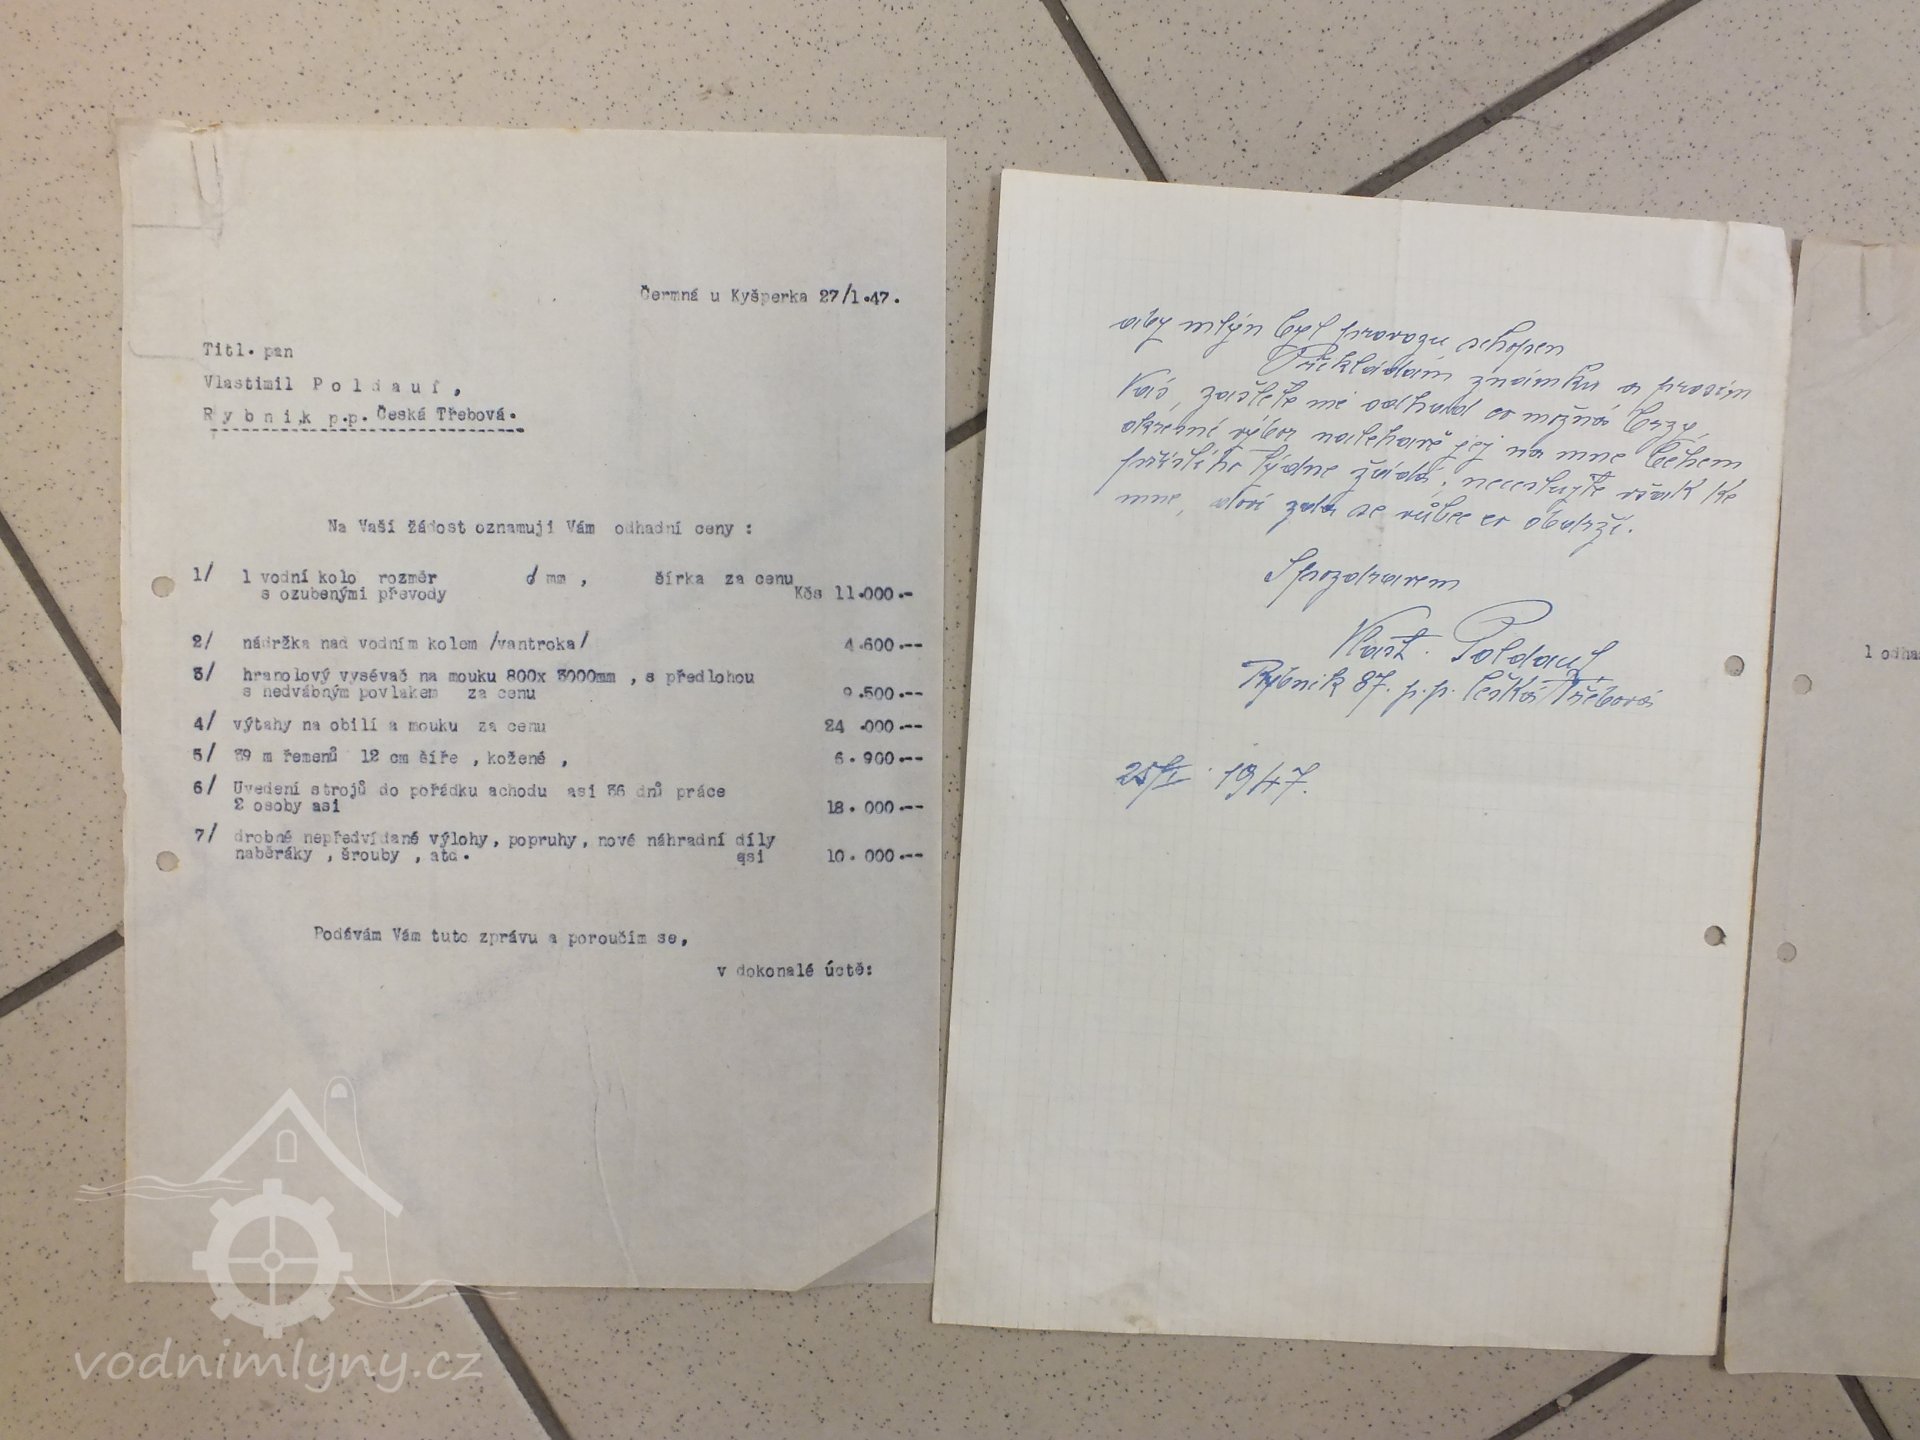 Čermná u Kyšperka 27/1.47.
Titl. pan
Vlastimil Poldauf,
Rybnik p.p. Česká Třebová.
Na Vaší žádost oznamuji Vám odhadní ceny :
1/ 1 vodní kolo rozměr mm , šírka za cenu
s ozubenými převody Kčs 11.000.-
2/ nádržka nad vodním kolem /vantroka/ 4.600.--
3/ hranolový vysévač na mouku 800x 3000mm , s předlohou
s nedvábným povlakem za cenu 9.500.--
4/ výtahy na obilí a mouku za cenu 24 .000.--
5/ 39 m řemenů 12 cm šíře , kožené , 6.900.--
6/ Uvedení strojů do pořádku achodu asi 36 dnů práce
2 osoby asi 18.000.--
7/ drobné nepředvídané výlohy, popruhy, nové náhradní díly
naběráky , šrouby , atd. asi 10.000.--
Podávám Vám tuto zprávu a poroučím se,
v dokonalé úctě:
aby mlýn byl provozu schopen
Přikládám známku a prosím
Vás, zašlete mi odhad co možná brzy,
okresní výbor naléhavě jej na mne během
příštího týdne žádá, necestujte však ke
mne, se vůbec co obdrží.
S pozdravem
Vlast. Poldauf
Rybnik 87. p.p. Česká Třebová
25/I. 1947.
1 odha
vodnimlyny.cz